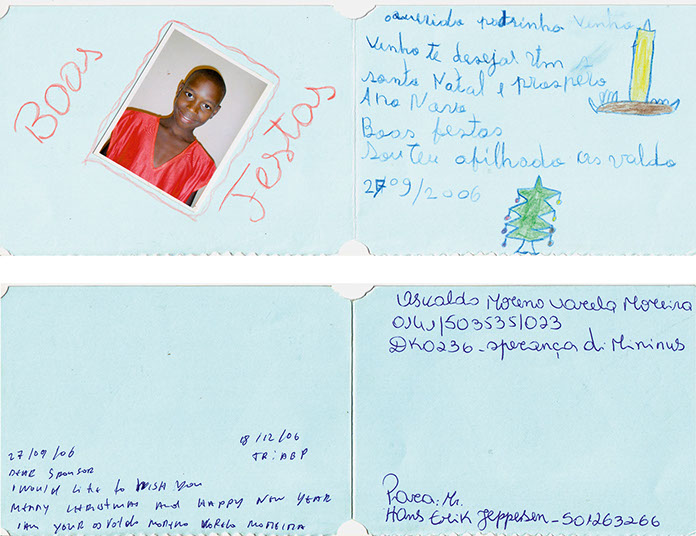 Boas
Festas
Querido padrinho venho
venho te deseja! Um
santo Natal e prospero
Ano Novo
Boas festas
Sou teu afilhado osvaldo
27/09/2006
18/12/06
27/09/06 TR: ABP
DEAR SPONSOR
I WOULD LIKE TO WISH YOU
MERRY CHRISTMAS AND HAPPY NEW YEAR
I AM YOUR OSVALDO MORENO VARELA MOREIRA
Osvaldo Moreno Varela Moreira
5035351023
DK0236 - sperança di Mininus
Para: Mr.
Hans Erik Jeppesen - 501263266